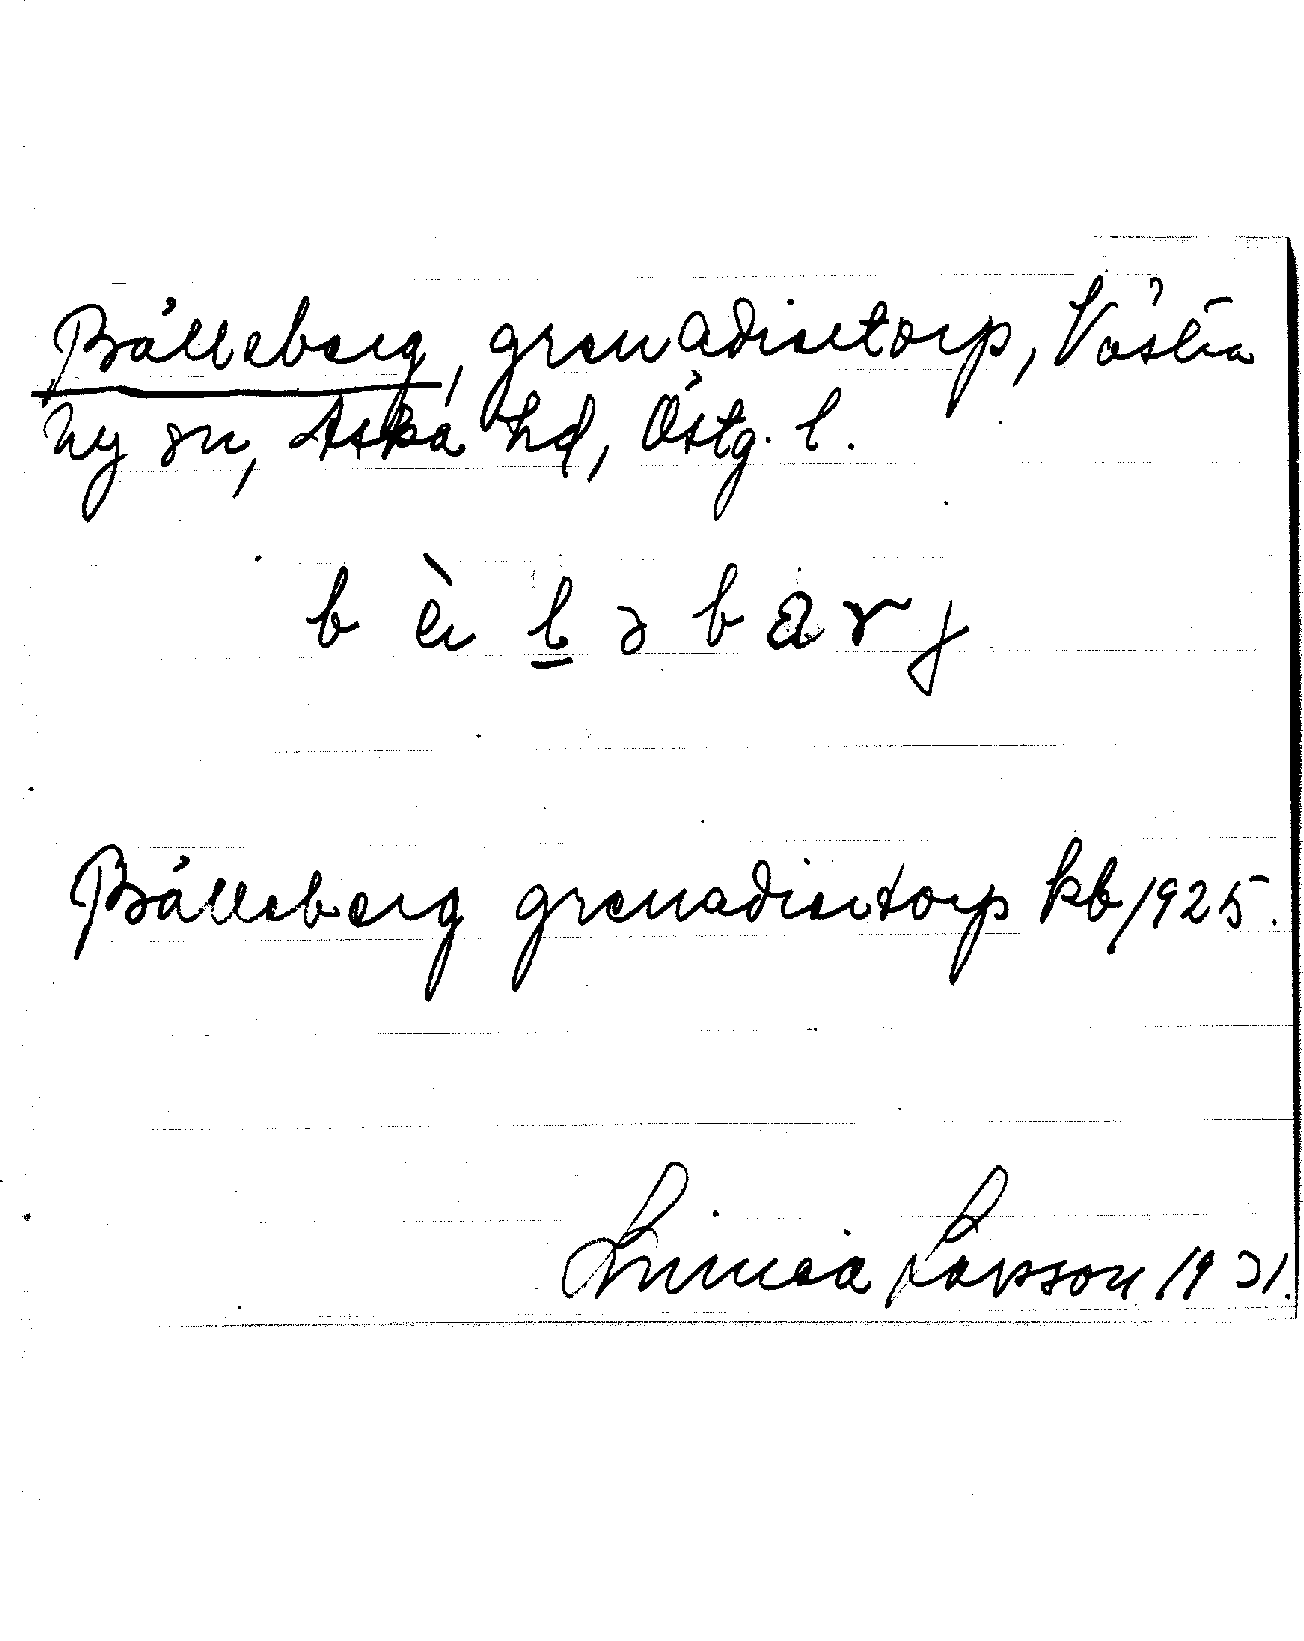 Bålleberg, grenadiertorp, Västra
Ny sn, Aska hd, Östg. l.
Bålleberg grenadiertorp kb 1925.
Linnéa Larsson 1931.